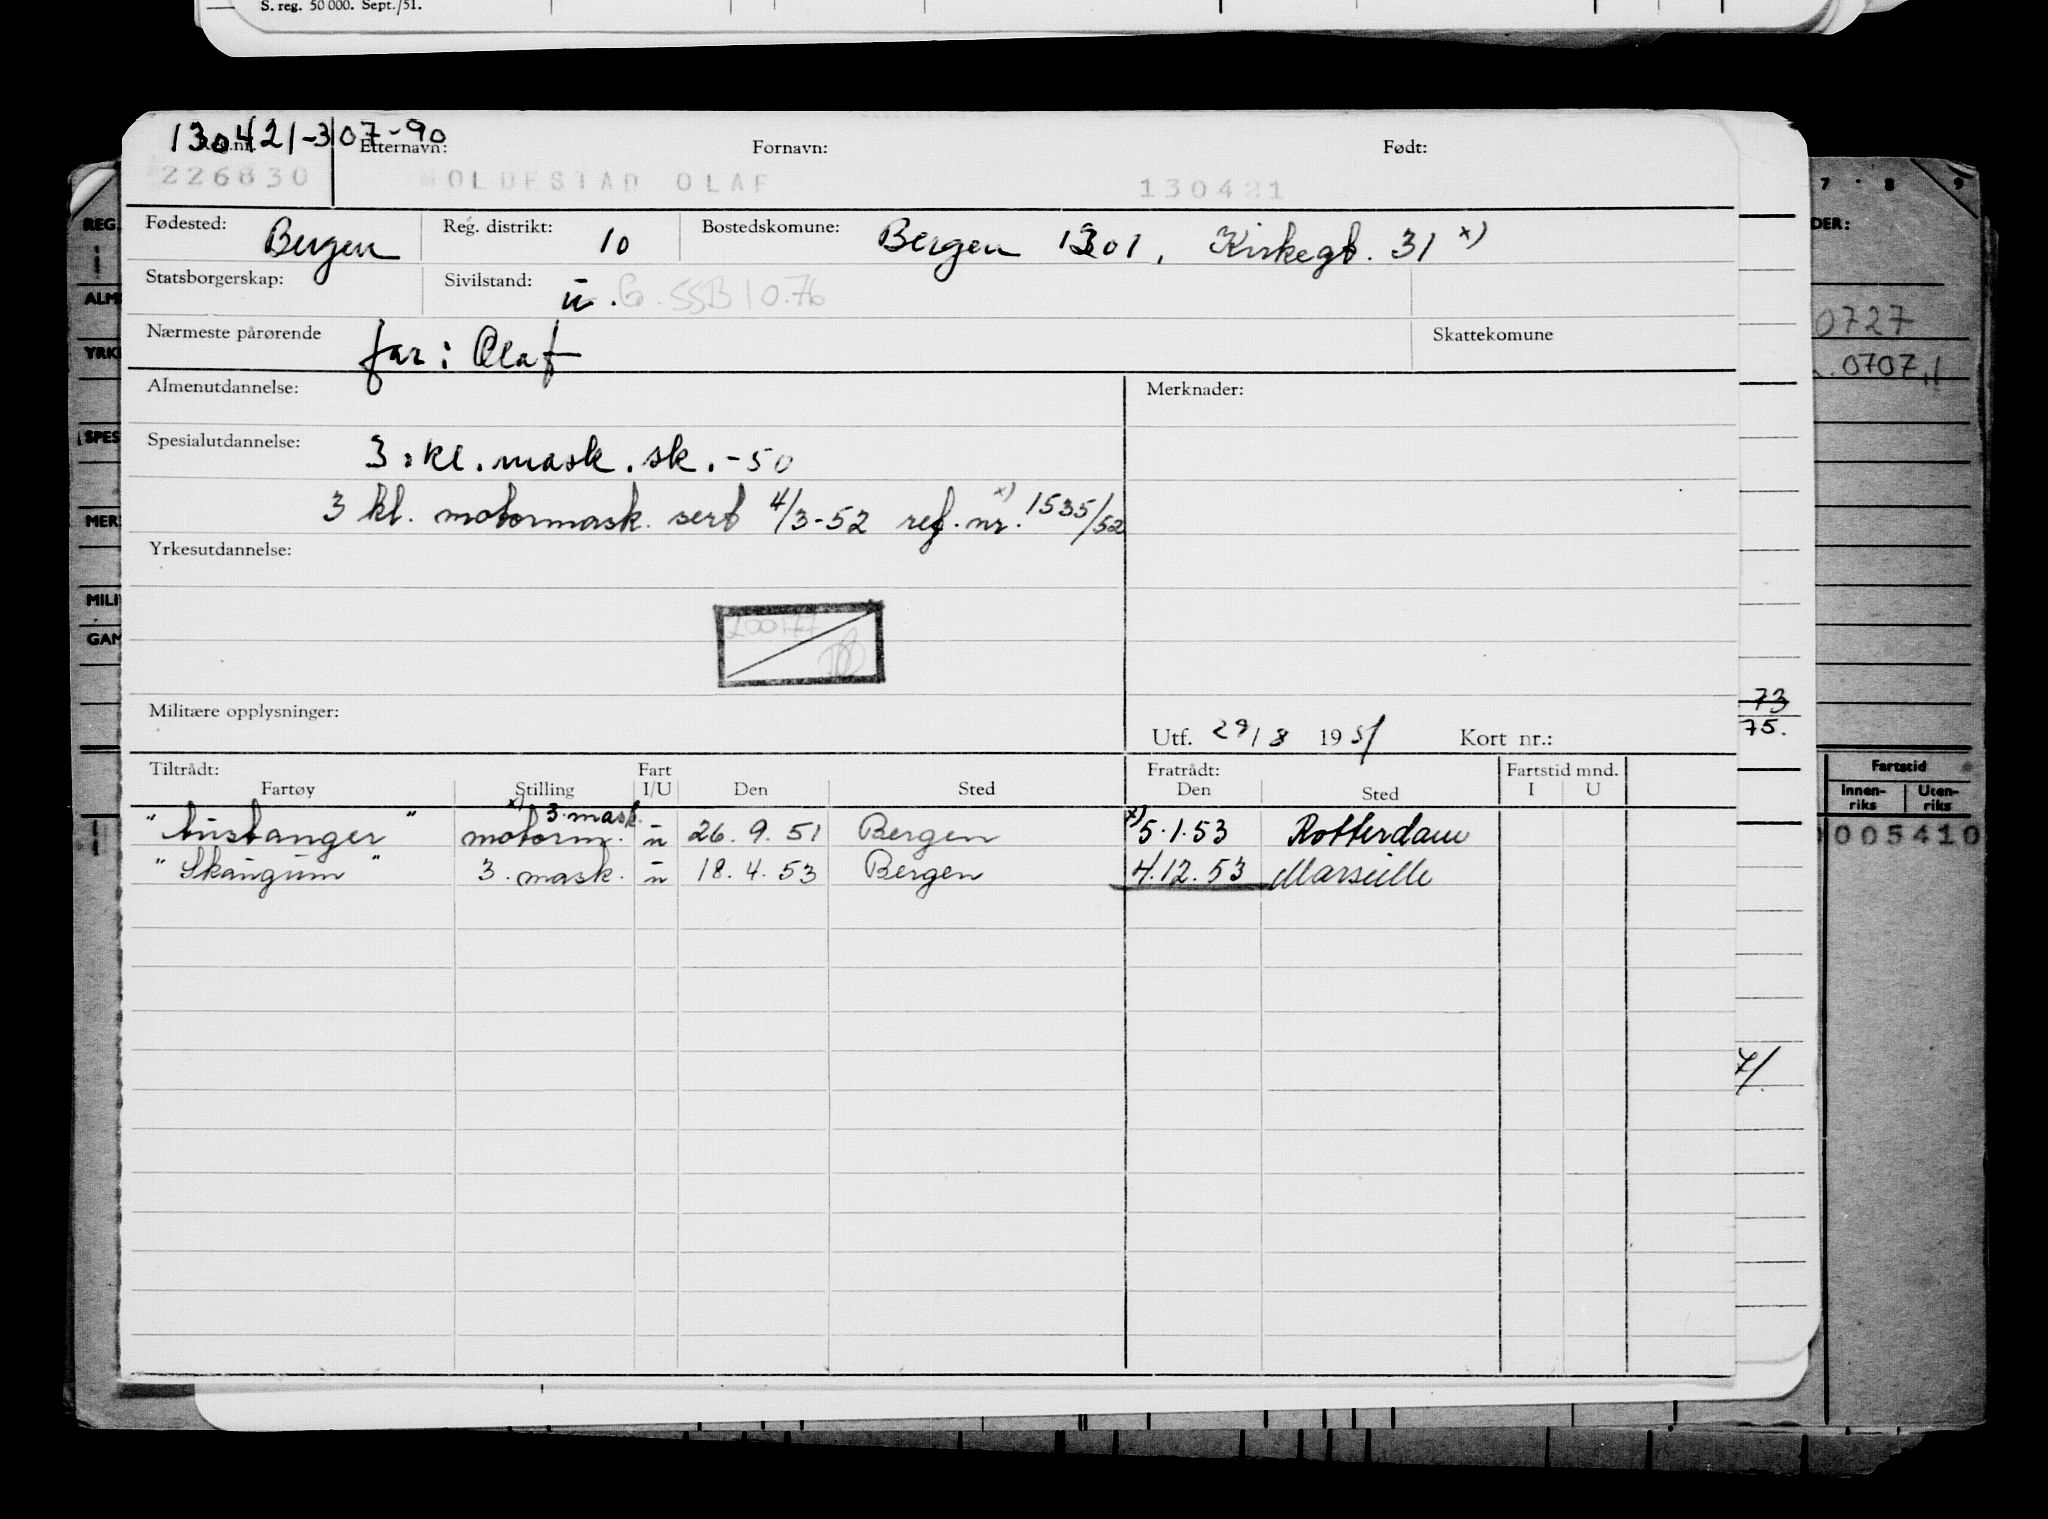 S. reg. 50 000. Sept./51.
130421-307-90
Reg.nr. Etternavn: Fornavn: Født:
226830 MOLDESTAD OLAF 130421
Fødested: Bergen Reg. distrikt: 10 Bostedskomune: Bergen 1301, Kirkegt. 31 x)
Statsborgerskap: Sivilstand: u. SSB 10.76
Nærmeste pårørende far: Olaf Skattekomune
Almenutdannelse: Merknader:
Spesialutdannelse: 3. kl. mask. sk. -50
3 kl. motormask. sert 4/3-52 ref. nr. x) 1535/52
Yrkesutdannelse:
200177
Militære opplysninger:
Utf. 29/8 1951 Kort nr.:
Tiltrådt: Fart Fratrådt: Fartstid mnd.
Fartøy Stilling I/U Den Sted Den Sted I U
x) 3. mask.
" Austanger " motorm. u 26. 9. 51 Bergen x) 5. 1. 53 Rotterdam
" Skaugum " 3. mask. u 18. 4. 53 Bergen 4. 12. 53 Marseille
REG.
ALM
YRK
SPES
MER
MILI
GAM
7 8 9
DER:
0727
0707
73
75.
Fartstid
Innen-riks Uten-riks
005410
7/.